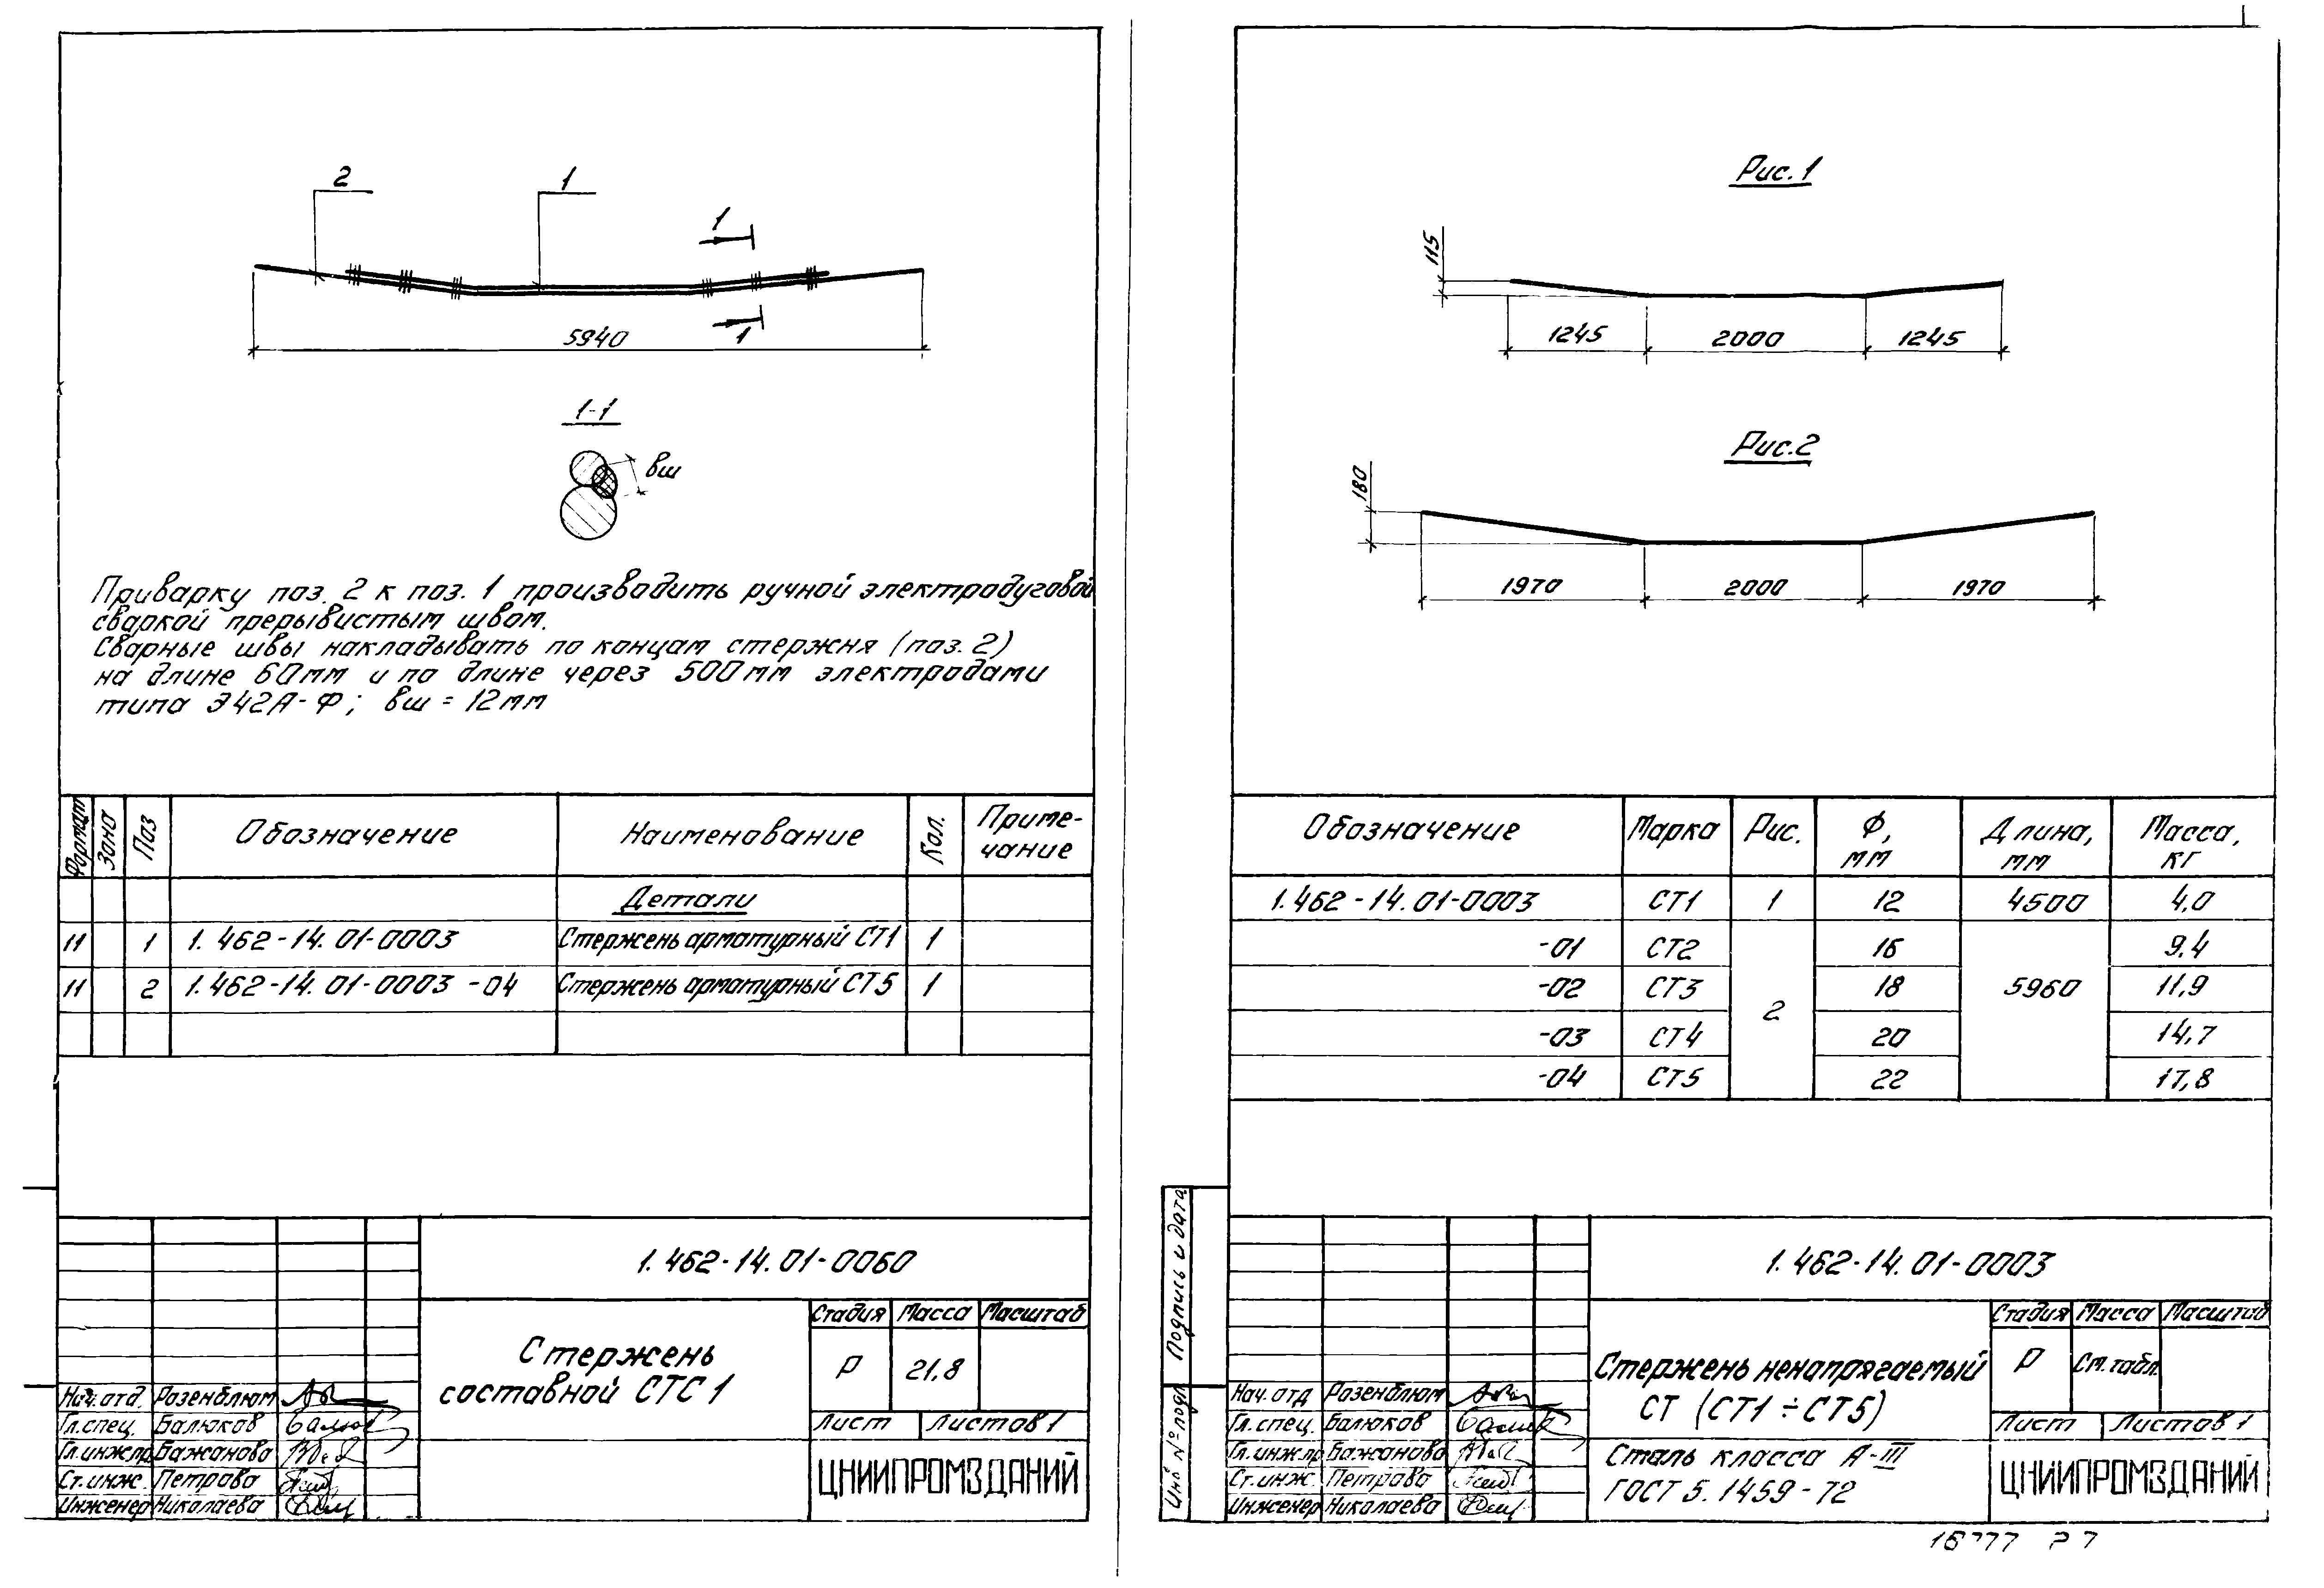 2
1
1
1
5940
1-1
вш
Приварку поз. 2 к поз. 1 производить ручной электродуговой
сваркой прерывистым швом.
Сварные швы накладывать по концам стержня (поз. 2)
на длине 60мм и по длине через 500мм электродами
типа Э42А-Ф; вш = 12мм
Формат Зона Поз Обозначение Наименование Кол. Приме-
чание
Детали
11 1 1.462-14.01-0003 Стержень арматурный СТ1 1
11 2 1.462-14.01-0003-04 Стержень арматурный СТ5 1
1.462-14.01-0060
Стержень
составной СТС 1
Стадия Масса Масштаб
Р 21,8
Лист Листов 1
ЦНИИПРОМЗДАНИЙ
Нач. отд. Розенблюм
Гл. спец. Балюков
Гл. инж. пр. Бажанова
Ст. инж. Петрова
Инженер Николаева
Рис. 1
115
1245 2000 1245
Рис. 2
180
1970 2000 1970
Обозначение Марка Рис. Ф, мм Длина, мм Масса, кг
1.462-14.01-0003 СТ1 1 12 4500 4,0
-01 СТ2 2 16 5960 9,4
-02 СТ3 18 11,9
-03 СТ4 20 14,7
-04 СТ5 22 17,8
Подпись и дата
Инв № подл.
1.462-14.01-0003
Стержень ненапрягаемый
СТ (СТ1÷СТ5)
Стадия Масса Масштаб
Р См. табл.
Лист Листов 1
Сталь класса А-III
ГОСТ 5.1459-72
ЦНИИПРОМЗДАНИЙ
Нач. отд Розенблюм
Гл. спец. Балюков
Гл. инж. пр Бажанова
Ст. инж Петрова
Инженер Николаева